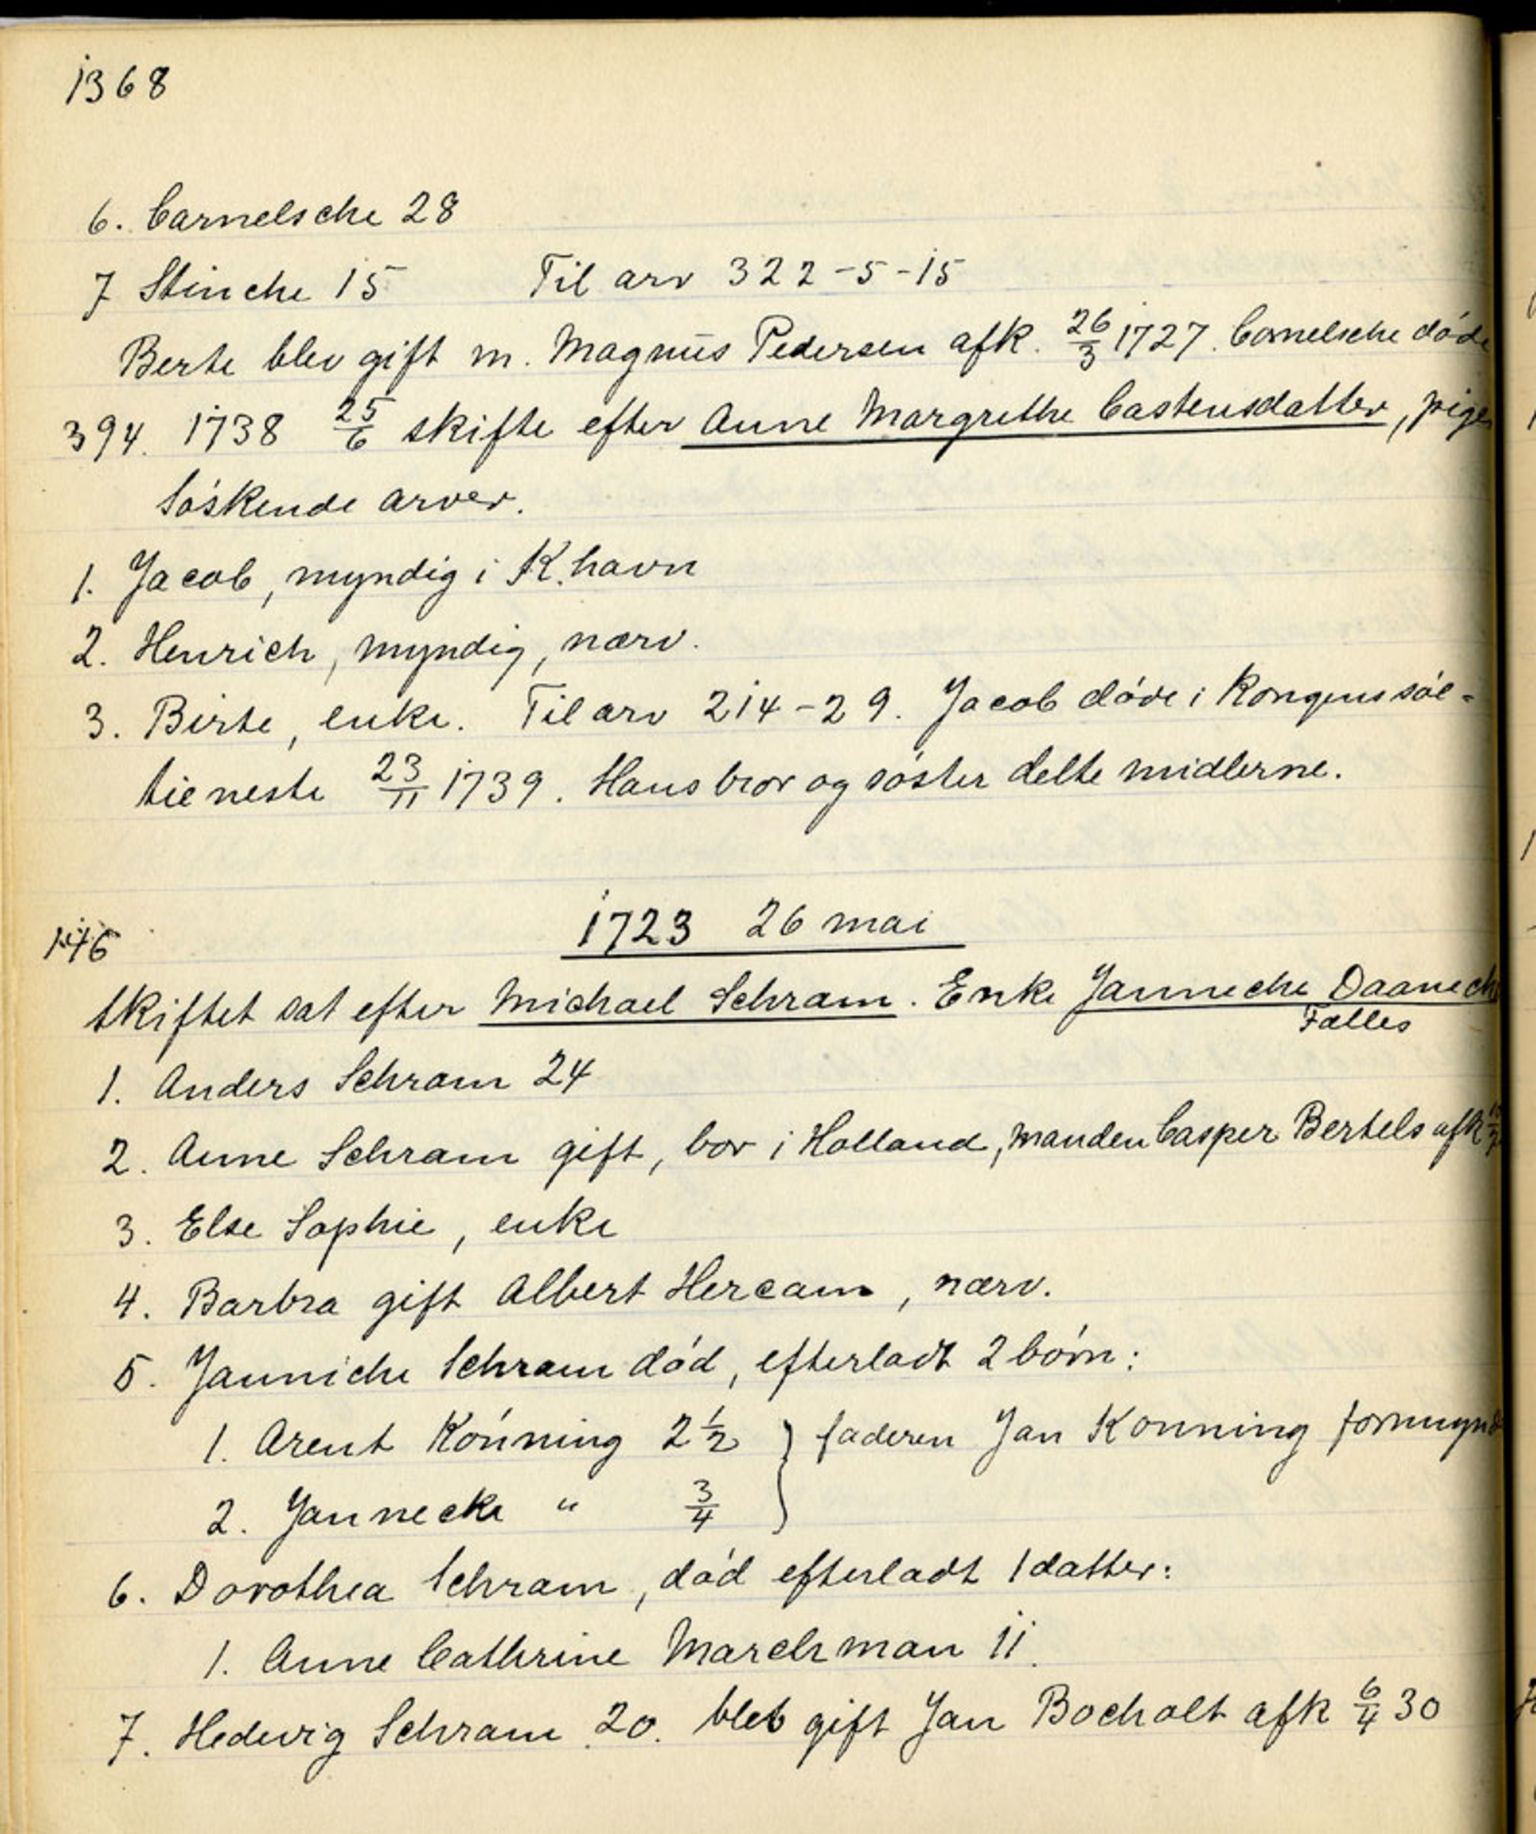 1368
6. Carnelsche 28
7 Stinche 15 Til arv 322-5-15
Berte blev gift m. Magnus Pedersen afk. 26/3 1727. Carnelsche døde
394. 1738 25/6 skifte efter Anne Margrethe Castensdatter, pige
Søskende arver.
1. Jacob, myndig i K.havn
2. Henrich, myndig, nærv.
3. Birte, enke. Til arv 214-29. Jacob døde i Kongens søe-
tieneste 23/11 1739. Hans bror og søster delte midlerne.
146 1723 26 mai
skiftet sat efter Michael Schram. Enke Janneche Daanech
Fælles
1. Anders Schram 24
2. Anne Schram gift, bor i Holland, manden Casper Bertels afk
3. Else Sophie, enke
4. Barbra gift Albert Hercam, nærv.
5. Janniche Schram død, efterladt 2 børn:
1. Arent Konning 2 1/2 } faderen Jan Konning formynd
2. Jannecke " 3/4
6. Dorothea Schram, død efterladt 1 datter:
1. Anne Cathrine Marchman 11.
7. Hedevig Schram 20. blev gift Jan Bocholt afk 6/4 30